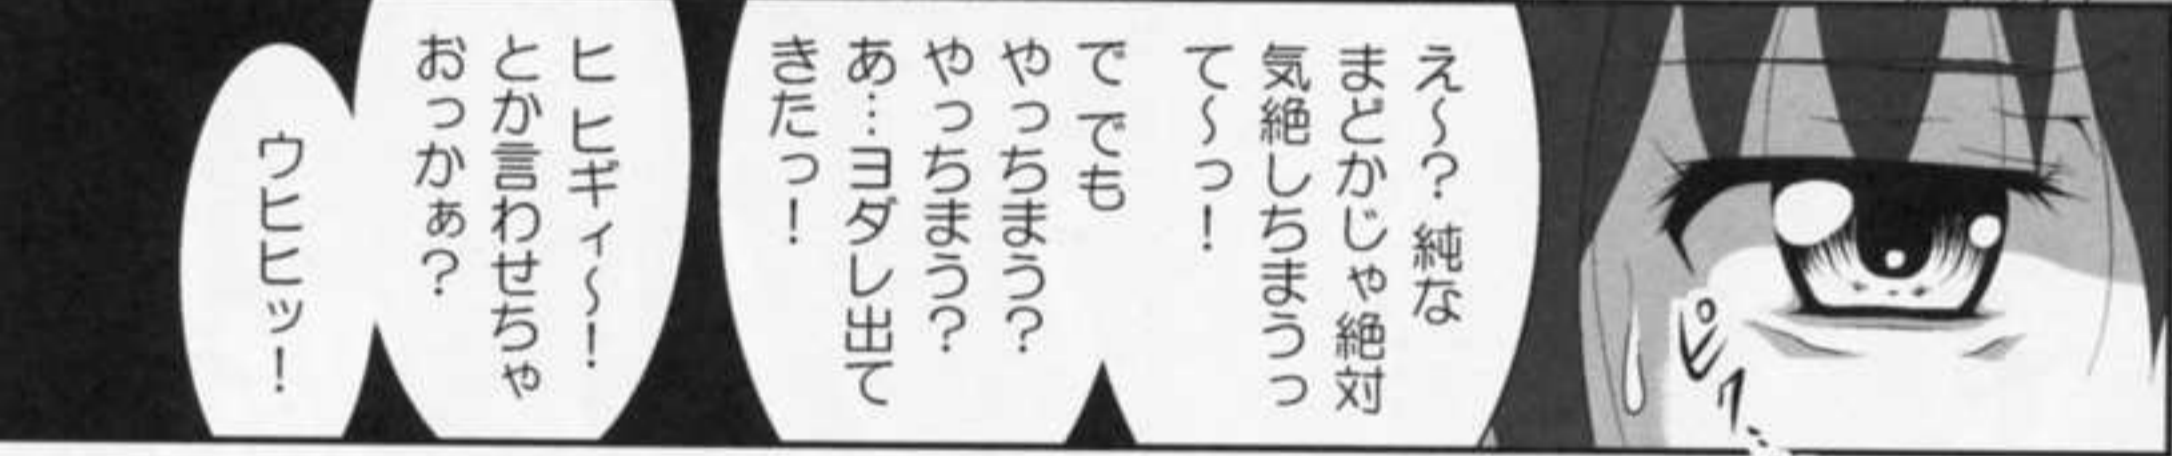 え～？ 純な
まどかじゃ絶対
気絶しちまうっ
て～っ！
で でも
やっちまう？
やっちまう？
あ…ヨダレ出て
きたっ！
ヒ ヒギィ～！
とか言わせちゃ
おっかぁ？
ウヒヒッ！
ピク…